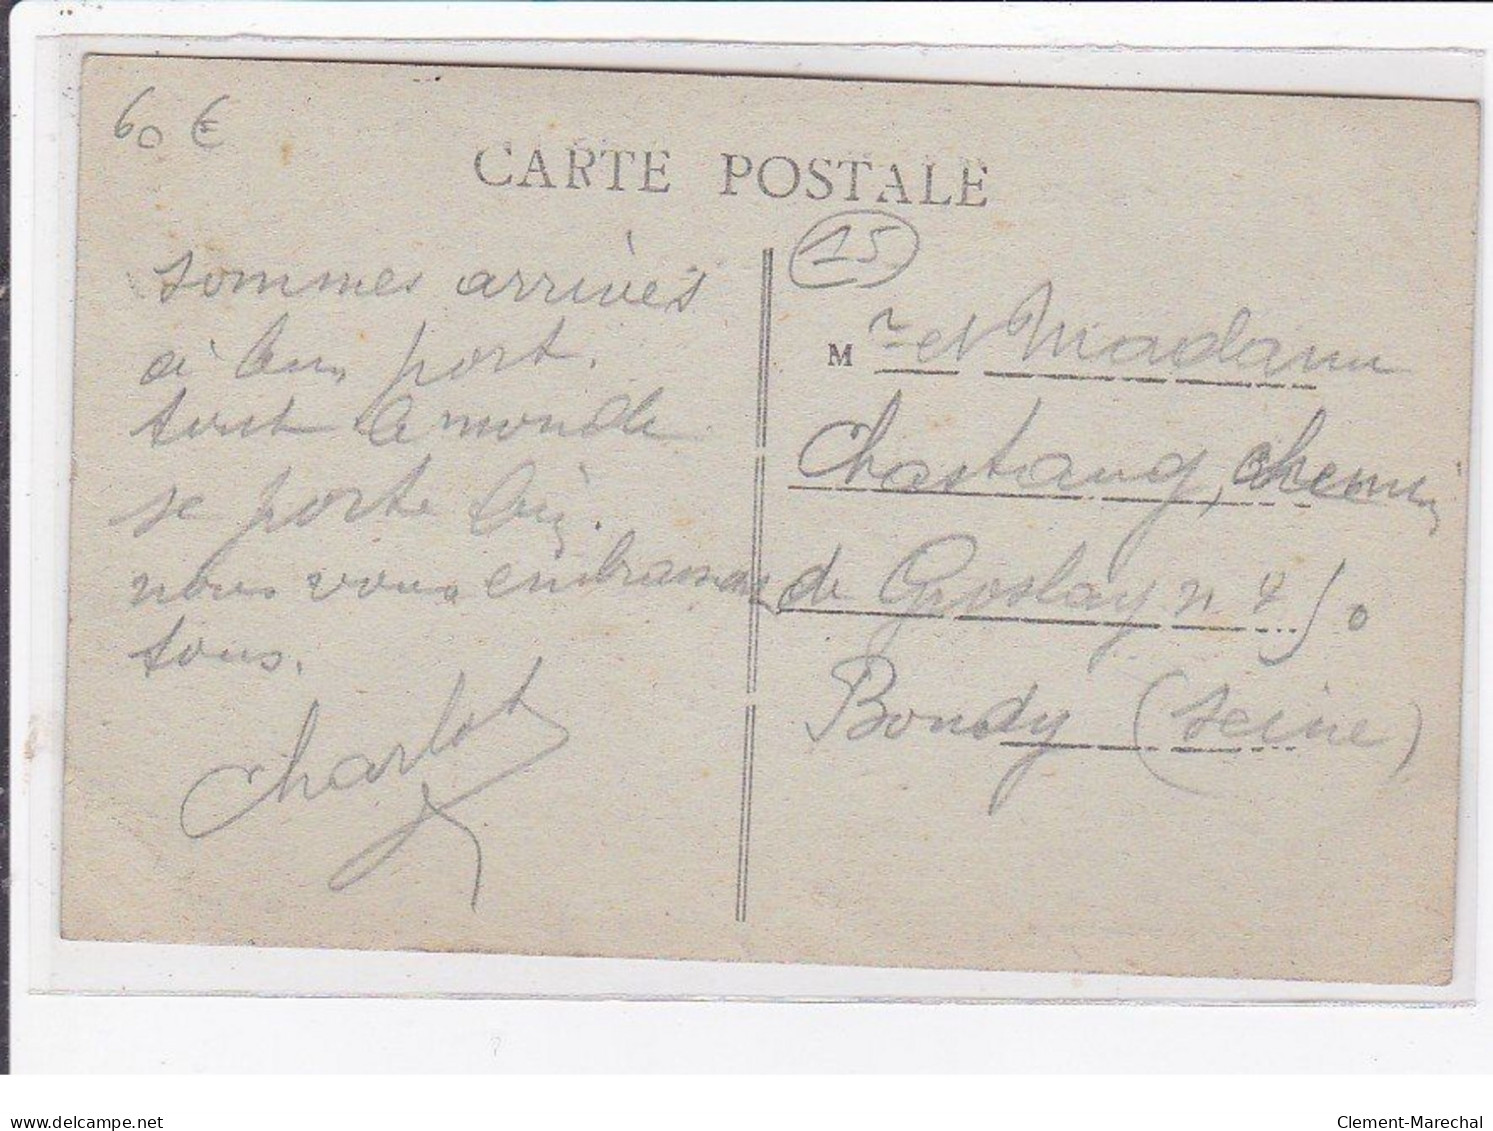 60 €
CARTE POSTALE
15
sommes arrivés
à bon port.
tout le monde
se porte bien.
nous vous embrassons
tous.
Charlot
M r et Madame
Chastang, chemin
de Groslay n
Bondy (Seine)
delcampe.net
Clement-Marechal